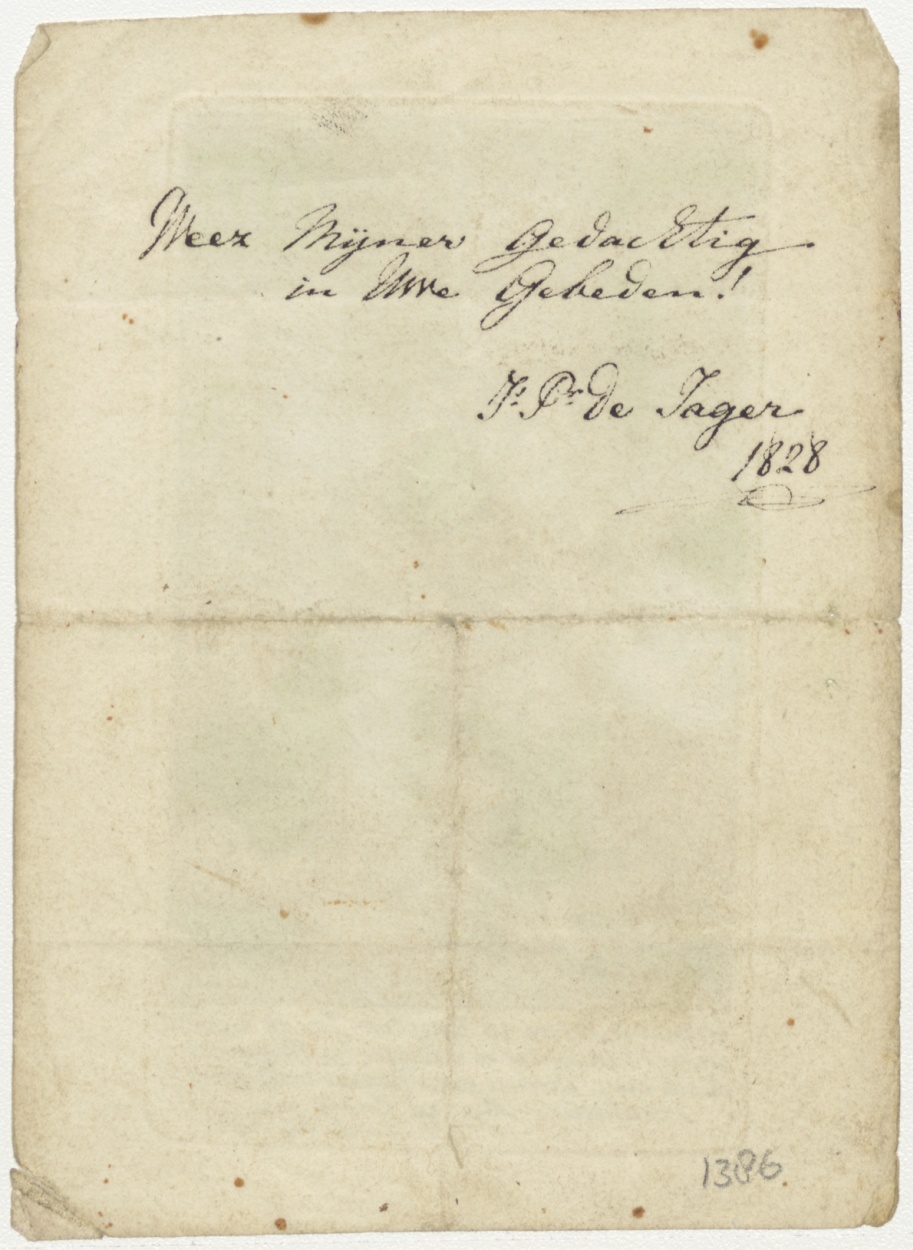 Weez Mijner Gedachtig
in Uwe Gebeden!
Js. Pr. de Jager
1828
1386